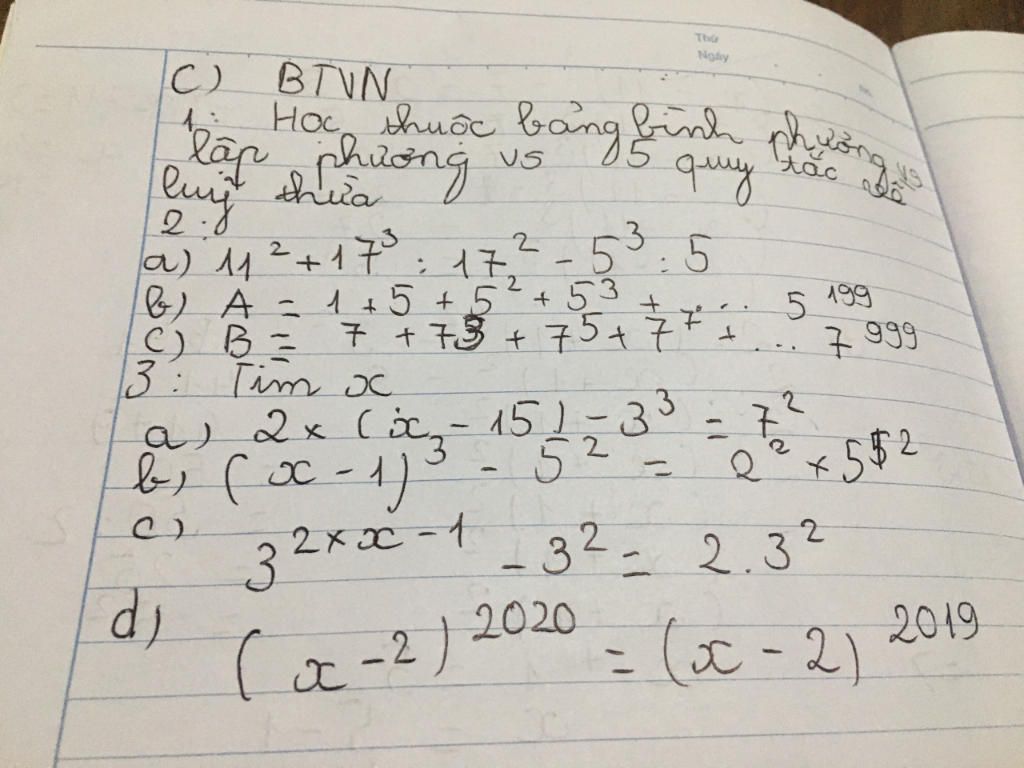 Thứ
Ngày
C) BTVN
1: Học thuộc bảng bình phương vs
lập phương vs 5 quy tắc về
luỹ thừa
2:
a) 11² + 17³ : 17² - 5³ : 5
b) A = 1 + 5 + 5² + 5³ + ... 5¹⁹⁹
c) B = 7 + 7³ + 7⁵ + 7⁷ + ... 7⁹⁹⁹
3: Tìm x
a) 2 × (x - 15) - 3³ = 7²
b) (x - 1)³ - 5² = 2² × 5²
c) 3^(2 × x - 1) - 3² = 2 . 3²
d) (x - 2)²⁰²⁰ = (x - 2)²⁰¹⁹